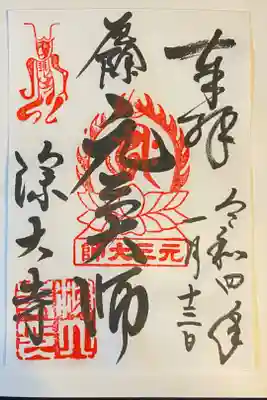 奉拝
令和四年
一月十三日
元三大師
元三大師
深大寺